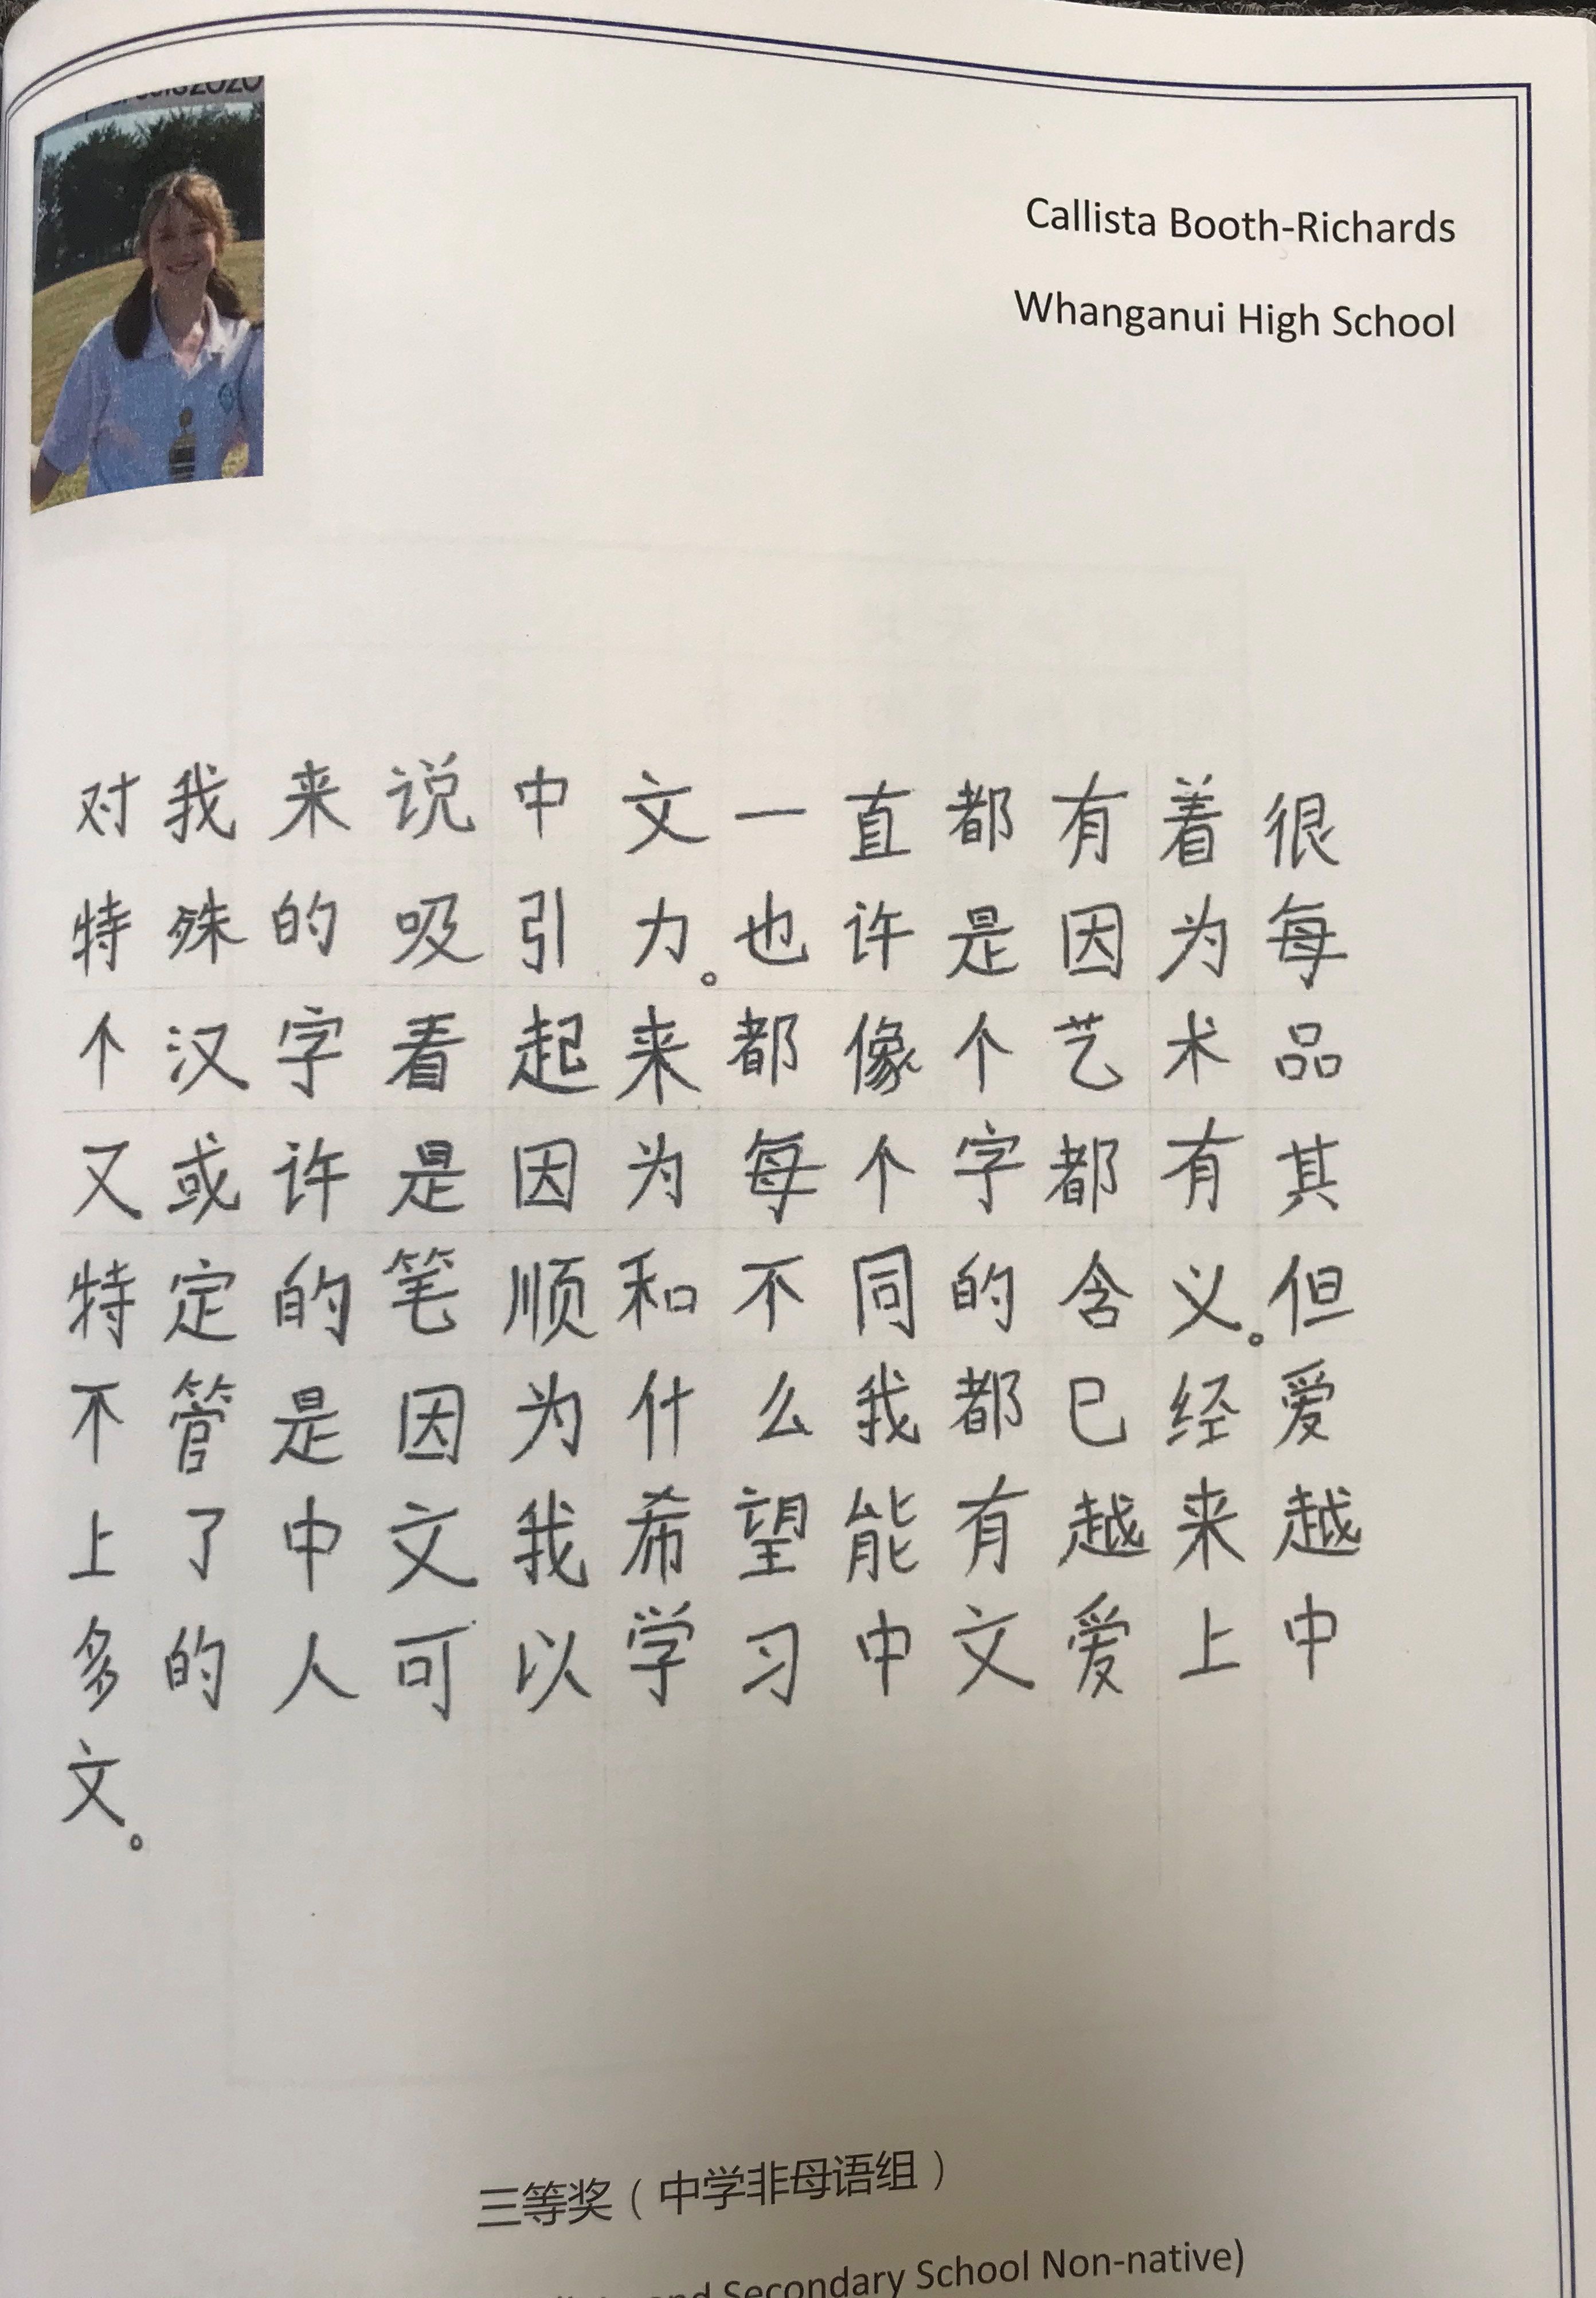 2020
Callista Booth-Richards
Whanganui High School
对我来说中文一直都有着很
特殊的吸引力。也许是因为每
个汉字看起来都像个艺术品
又或许是因为每个字都有其
特定的笔顺和不同的含义。但
不管是因为什么我都已经爱
上了中文我希望能有越来越
多的人可以学习中文爱上中
文。
三等奖（中学非母语组）
and Secondary School Non-native)